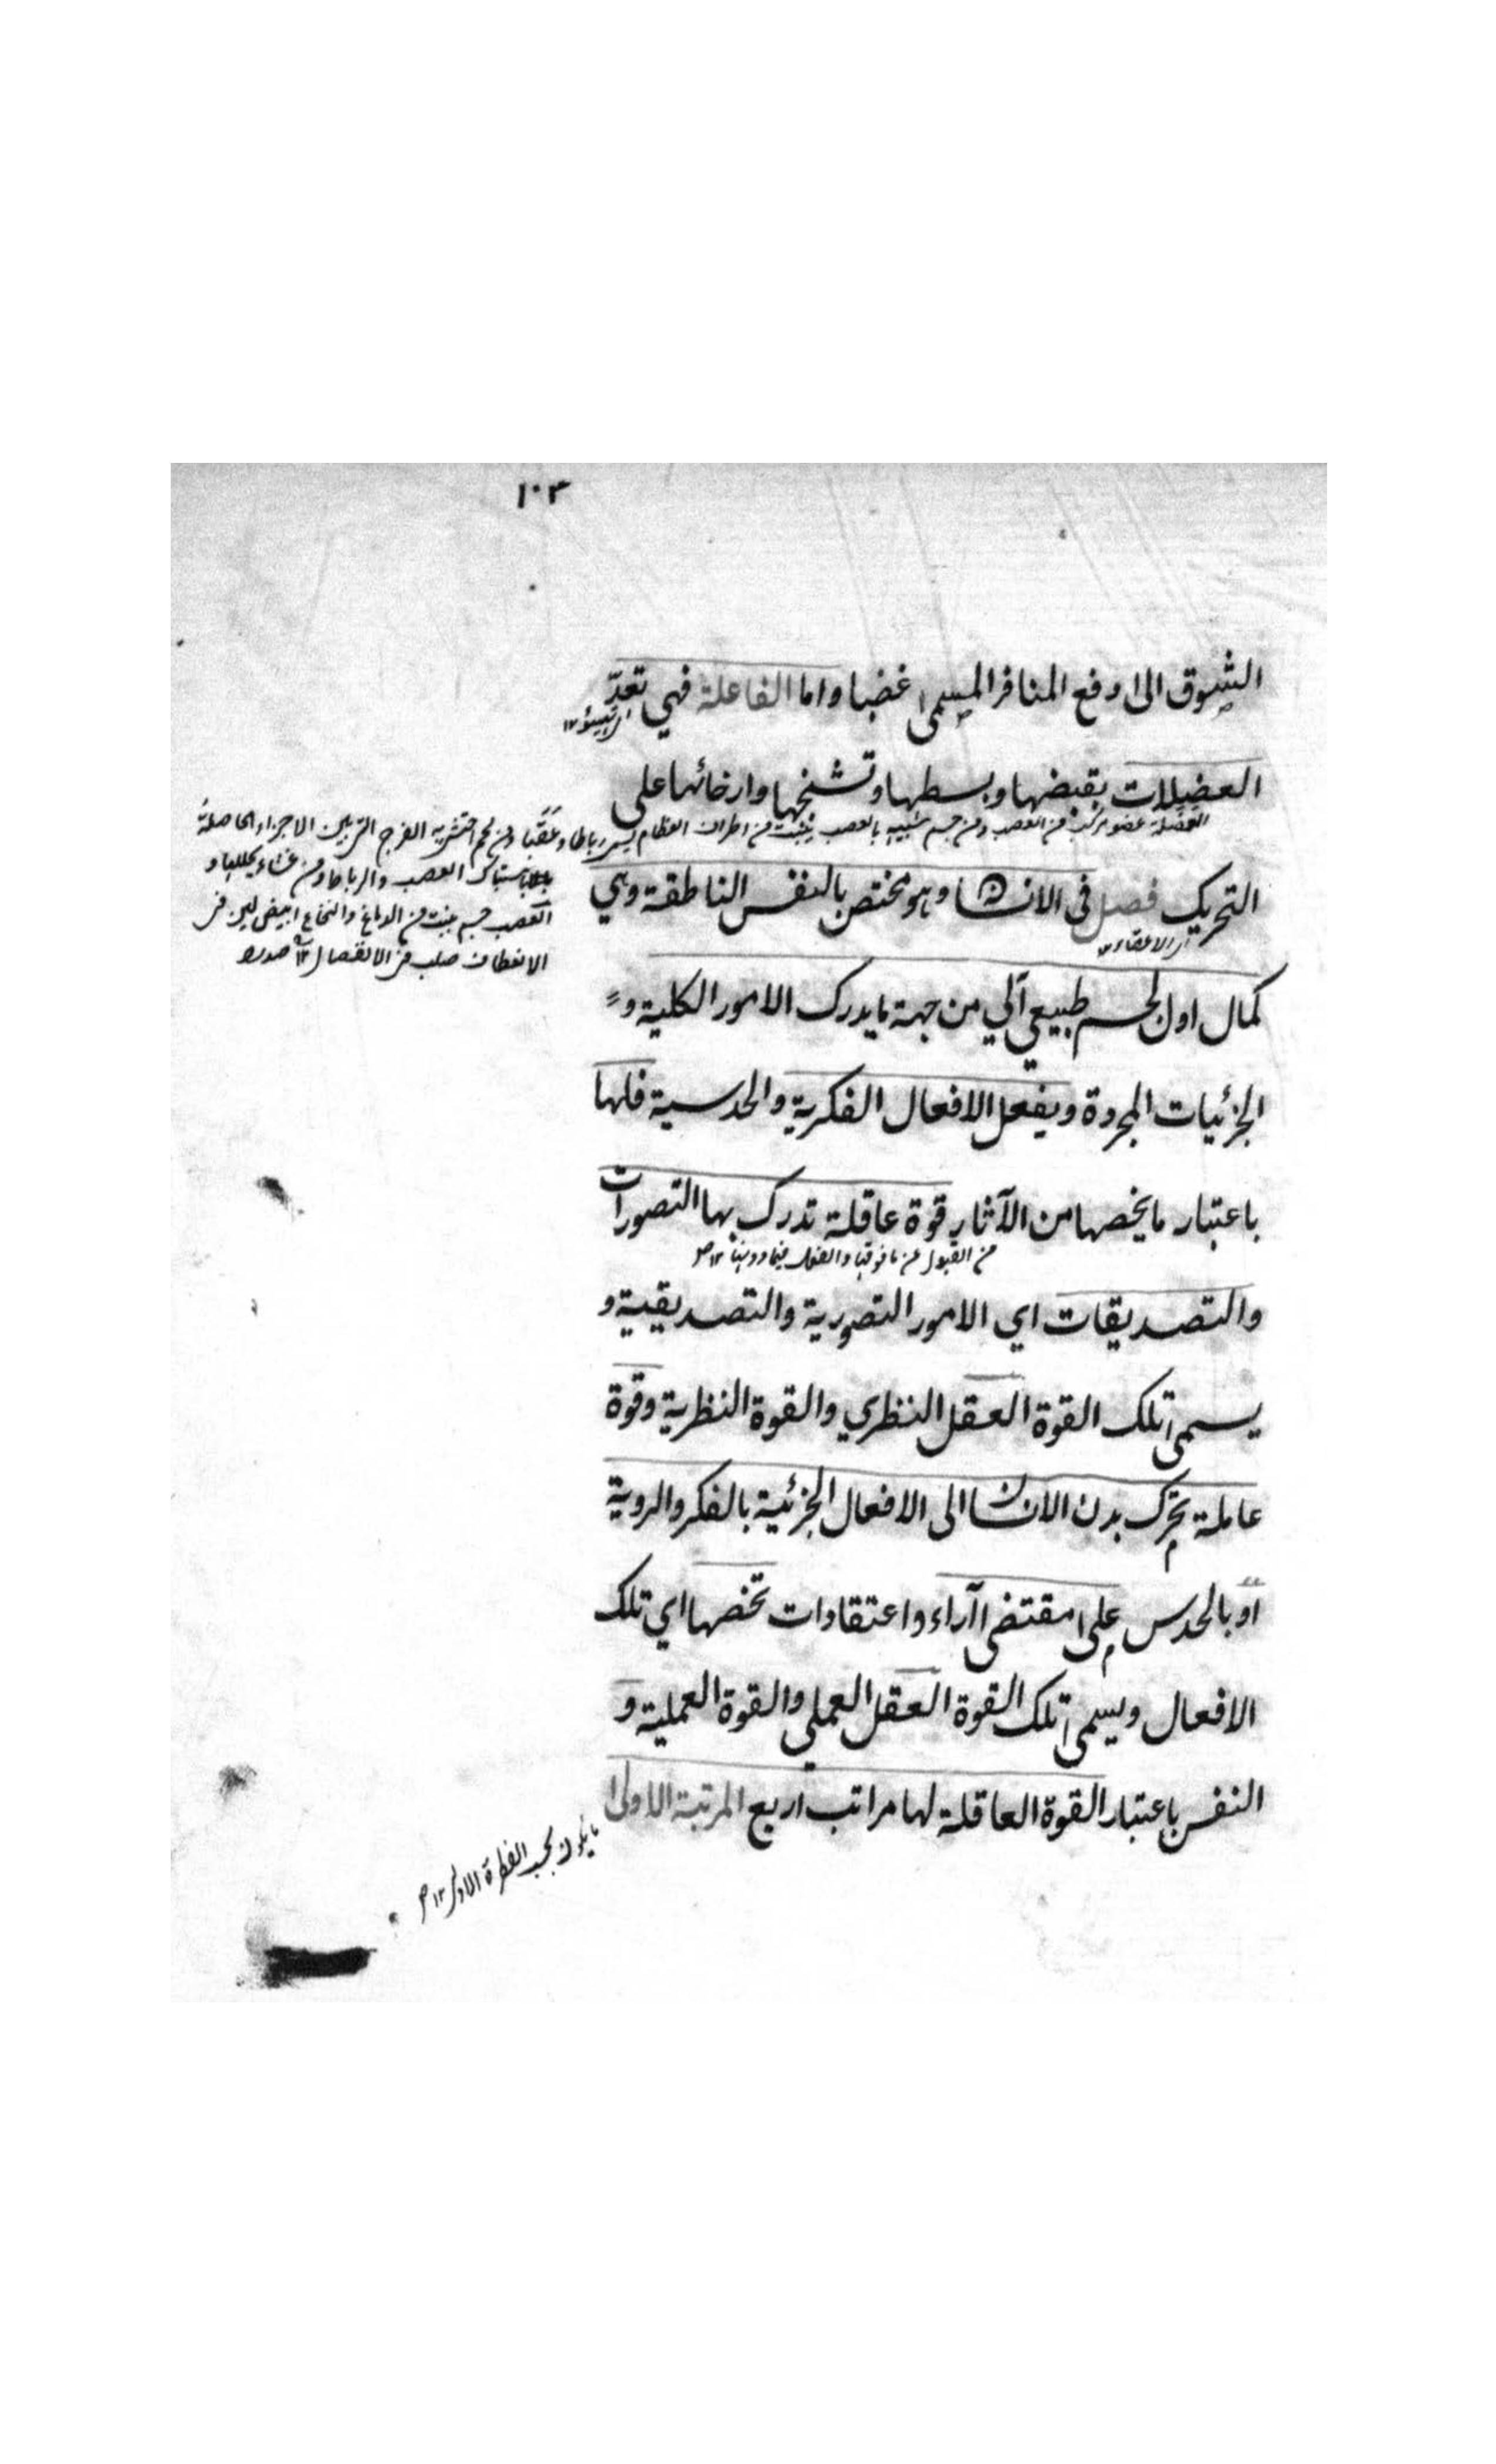 ١٠٣
الشوق الى دفع المنافر المسمى غضبا واما الفاعلة فهي تعدّ
العضلات بقبضها وبسطها وتشنجها وارخائها على
العضلة عضو مركب من العصب ومن جسم شبيه بالعصب ينبت من اطراف العظام يسمى رباطا وعقبا ومن لحم احتشى به الفرج التي بين الاجزاء الحاصلة
باشتباك العصب والرباط ومن غشاء يجللها و
العصب جسم ينبت من الدماغ والنخاع ابيض لين في
الانعطاف صلب في الانفصال ١٢
التحريك فصل في الانسان وهو مختص بالنفس الناطقة وهي
كمال اول لجسم طبيعي آلي من جهة ما يدرك الامور الكلية و
الجزئيات المجردة ويفعل الافعال الفكرية والحدسية فلها
باعتبار ما يخصها من الآثار قوة عاقلة تدرك بها التصورات
من القبول عن ما فوقها والفعل فيما دونها ١٢
والتصديقات اي الامور التصورية والتصديقية و
يسمى تلك القوة العقل النظري والقوة النظرية وقوة
عاملة تحرك بدن الانسان الى الافعال الجزئية بالفكر والروية
او بالحدس على مقتضى آراء واعتقادات تخصها اي تلك
الافعال ويسمى تلك القوة العقل العملي والقوة العملية و
النفس باعتبار القوة العاقلة لها مراتب اربع المرتبة الاولى
ما يكون بحسب الفطرة الاولى ١٢